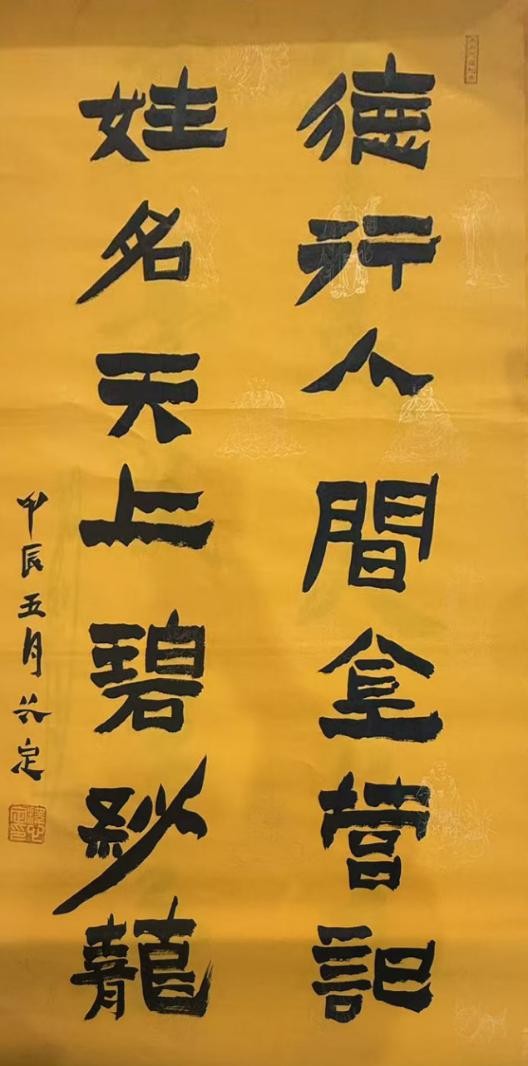 德行人間金管記
姓名天上碧紗籠
甲辰五月